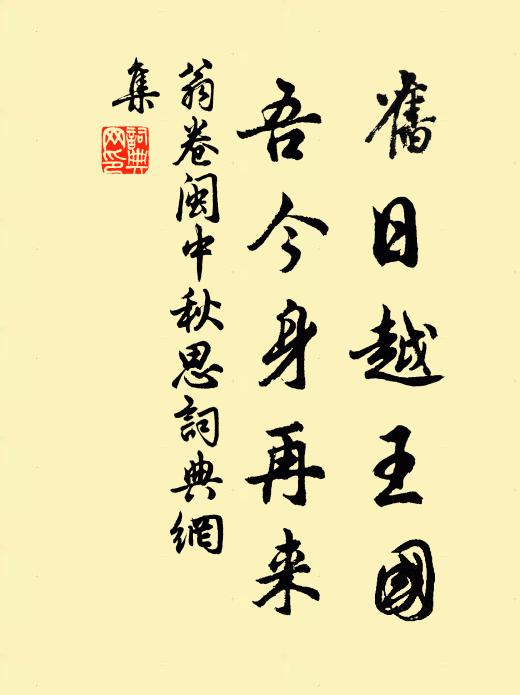 舊日越王國
吾今身再来
翁卷閩中秋思詞典網
集
詞典網印